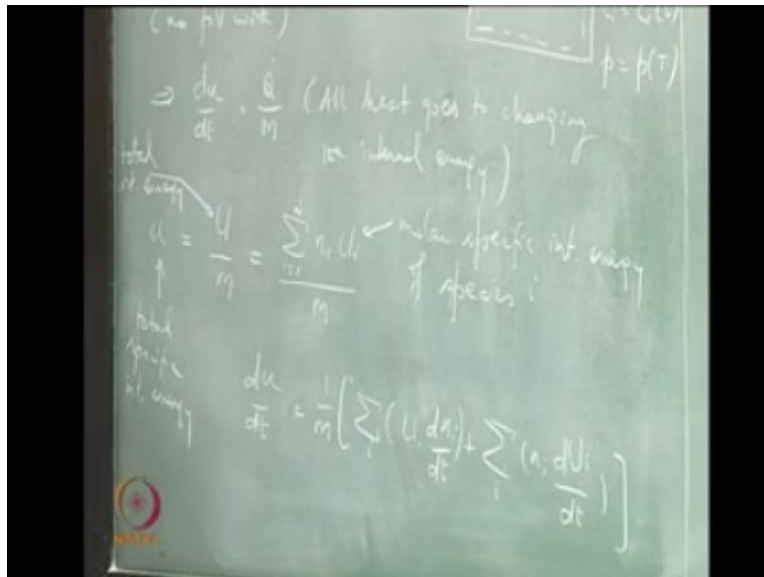 (no pV work)
p = p(T)
⇒ du/dt = Q̇/m (All heat goes to changing
internal energy)
total
int. energy
u = U/m = Σ_{i=1} n_i U_i / m ← molar specific int. energy
of species i
↑
total
specific
int. energy
du/dt = 1/m [ Σ_i (U_i dn_i/dt) + Σ_i (n_i dU_i/dt) ]
NPTEL